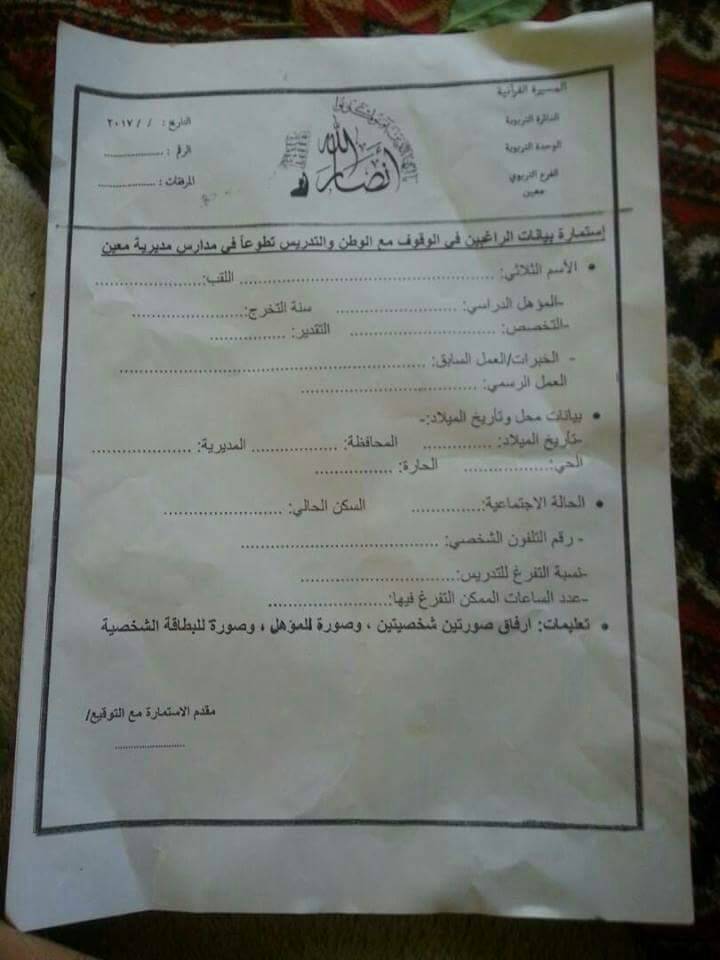 المسيرة القرآنية
الدائرة التربوية
الوحدة التربوية
الفرع التربوي
معين
أنصار الله
التاريخ : / / ٢٠١٧
الرقم : ...................
المرفقات : ...................
إستمارة بيانات الراغبين في الوقوف مع الوطن والتدريس تطوعاً في مدارس مديرية معين
• الأسم الثلاثي: ................................ اللقب:......................
-المؤهل الدراسي: ........................ سنة التخرج:......................
-التخصص: ............................. التقدير: ................
- الخبرات/العمل السابق: ............................................................
العمل الرسمي: ..................................
• بيانات محل وتأريخ الميلاد:-
-تأريخ الميلاد: .............. المحافظة: ................. المديرية: ...................
الحي:................. الحارة: ...............
• الحالة الاجتماعية:.............. السكن الحالي: .......................
- رقم التلفون الشخصي: .......................................
-نسبة التفرغ للتدريس:...............................
-عدد الساعات الممكن التفرغ فيها:........................
• تعليمات: ارفاق صورتين شخصيتين ، وصورة للمؤهل ، وصورة للبطاقة الشخصية
مقدم الاستمارة مع التوقيع/
.......................